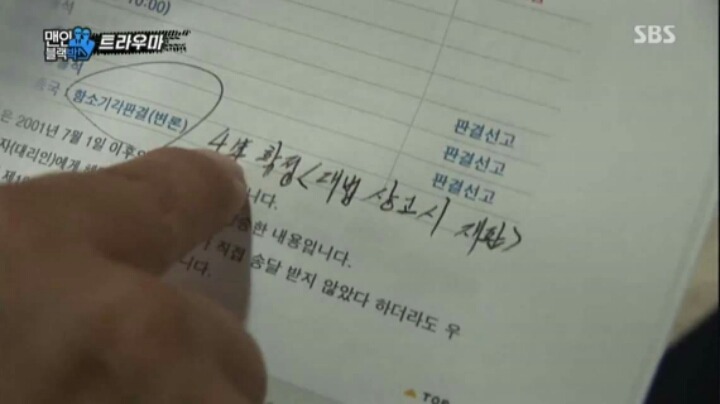 맨인블랙박스 트라우마
SBS
10:00)
항소기각판결(변론)
판결선고
판결선고
판결선고
4年 확정<대법 상고시 재판>
은 2001년 7월 1일 이후
자(대리인)에게
니다.
한 내용입니다.
직접 송달 받지 않았다 하더라도 우
니다.